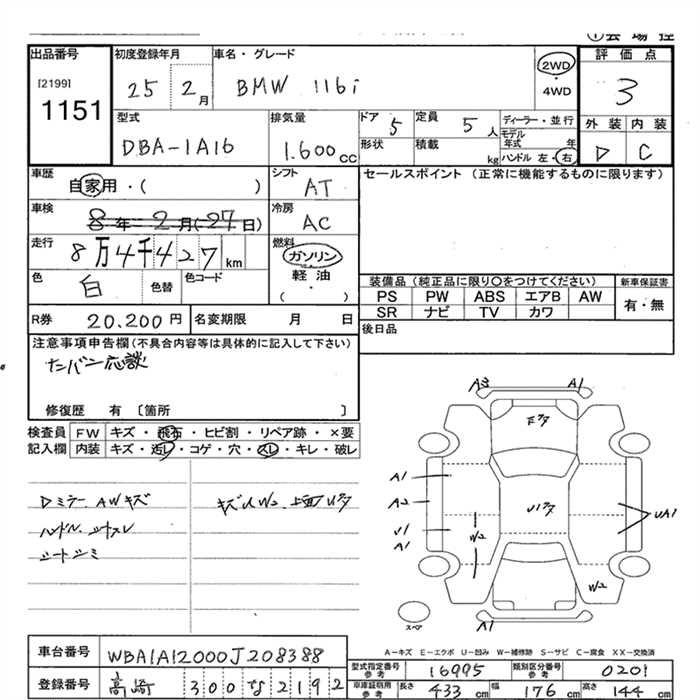 ①会場控
出品番号 初度登録年月 車名・グレード 評価点
[2199]
1151
25 2月 BMW 116i 2WD・4WD 3
型式 排気量 ドア 定員 ディーラー・並行 外装 内装
DBA-1A16 1.600cc 5 5人 モデル年式 年
形状 積載 kg ハンドル 左・右 D C
車歴 自家用・( ) シフト AT セールスポイント (正常に機能するものに限ります)
車検 8年2月(27日) 冷房 AC
走行 8万4千427km 燃料 ガソリン
軽油
( )
色 白 色替 色コード
装備品 (純正品に限り○をつけてください) 新車保証書
PS PW ABS エアB AW 有・無
SR ナビ TV カワ
R券 20.200円 名変期限 月 日 後日品
注意事項申告欄(不具合内容等は具体的に記入して下さい)
ナンバン応談
修復歴 有 [箇所 ]
検査員 FW キズ・飛石・ヒビ割・リペア跡・×要
記入欄 内装 キズ・汚レ・コゲ・穴・スレ・キレ・破レ
Dミラー AWキズ
ハンドル、シートスレ
シートシミ
A3 A1
A1
A2
U1
A1
W2
UA1
W2
スペア
A1
A-キズ E-エクボ U-凹み W-補修跡 S-サビ C-腐食 XX-交換済
車台番号 WBA1A12000J208388
型式指定番号参考 16995 類別区分番号参考 0201
登録番号 高崎 300な2192
車庫証明用参考 長さ 433cm 幅 176cm 高さ 144cm